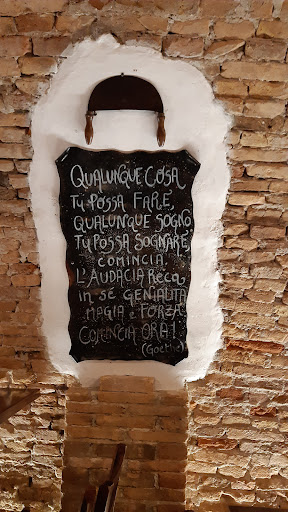 QUALUNQUE COSA
TU POSSA FARE,
QUALUNQUE SOGNO
TU POSSA SOGNARE,
COMINCIA.
L'AUDACIA RECA
IN SE GENIALITA
MAGIA e FORZA.
COMINCIA ORA!